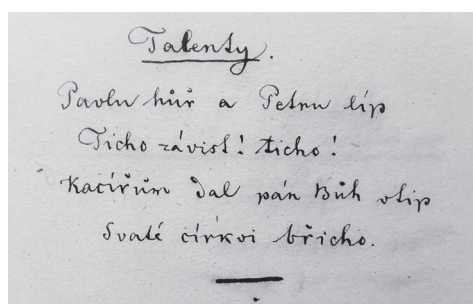 Talenty.
Pavlu hůř a Petru líp
Ticho závist! ticho!
Kacířům dal pán Bůh vtip
Svaté církvi břicho.